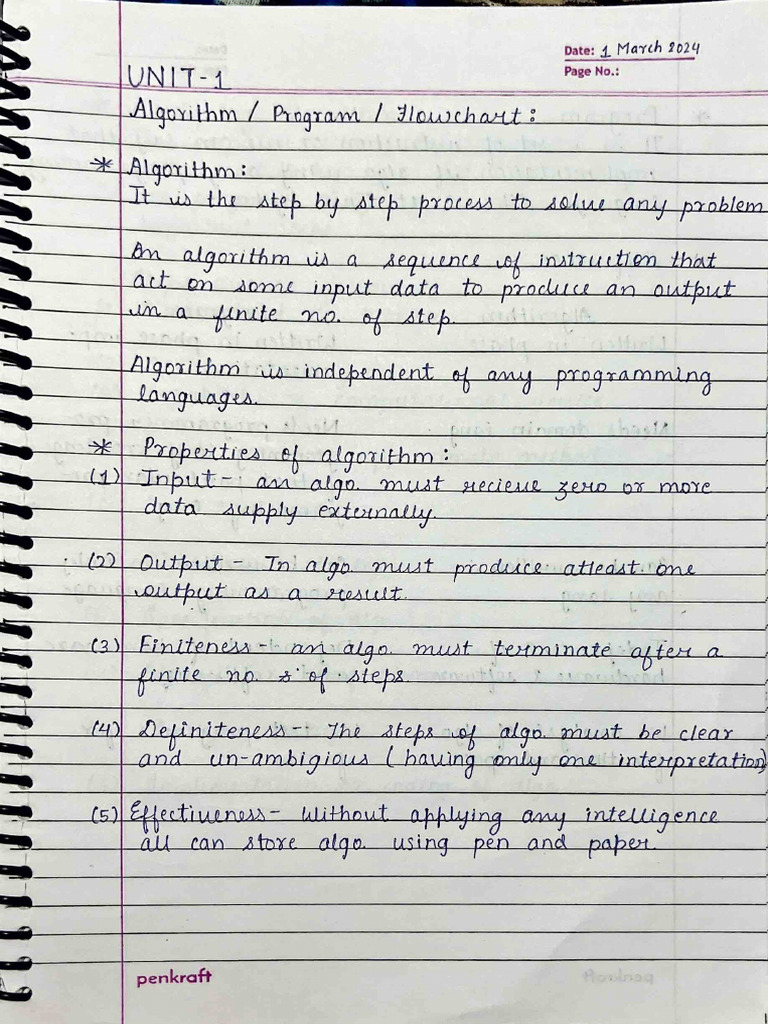 Date: 1 March 2024
Page No.:
UNIT-1
Algorithm / Program / Flowchart:
* Algorithm:
It is the step by step process to solve any problem
An algorithm is a sequence of instruction that
act on some input data to produce an output
in a finite no. of step.
Algorithm is independent of any programming
languages.
* Properties of algorithm:
(1) Input - an algo. must recieve zero or more
data supply externally.
(2) Output - In algo. must produce atleast one
output as a result.
(3) Finiteness - an algo. must terminate after a
finite no. s of steps.
(4) Definiteness - The steps of algo. must be clear
and un-ambigious (having only one interpretation)
(5) Effectiveness - Without applying any intelligence
all can store algo. using pen and paper.
penkraft